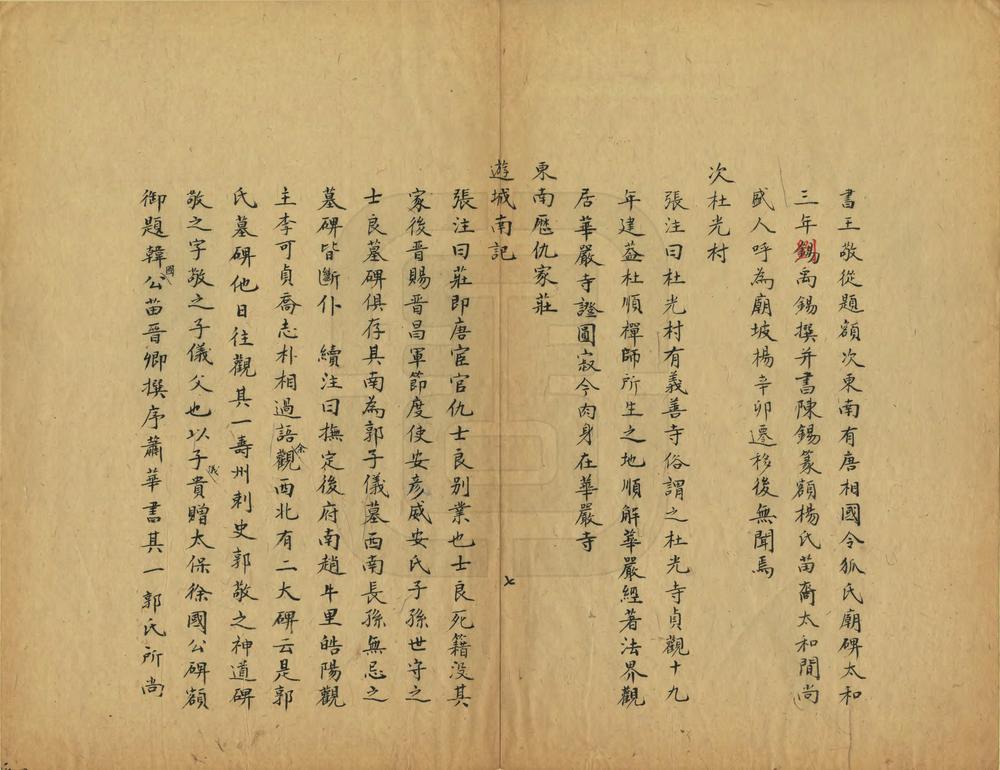 書王敬從題額次東南有唐相國令狐氏廟碑太和
三年錫禹錫撰并書陳錫篆額楊氏苗裔太和間尚
盛人呼為廟坡楊辛卯遷移後無聞焉
次杜光村
張注曰杜光村有義善寺俗謂之杜光寺貞觀十九
年建蓋杜順禪師所生之地順解華嚴經著法界觀
居華嚴寺證圓寂今肉身在華嚴寺
東南歷仇家莊
遊城南記
七
張注曰莊即唐宦官仇士良别業也士良死籍沒其
家後晋賜晋昌軍節度使安彥威安氏子孫世守之
士良墓碑俱存其南為郭子儀墓西南長孫無忌之
墓碑皆斷仆 續注曰撫定後府南趙牛里皓陽觀
主李可貞喬志朴相過語余觀西北有二大碑云是郭
氏墓碑他日往觀其一壽州刺史郭敬之神道碑
敬之字敬之子儀父也以子儀貴贈太保徐國公碑額
御題韓國公苗晋卿撰序蕭華書其一郭氏所尚